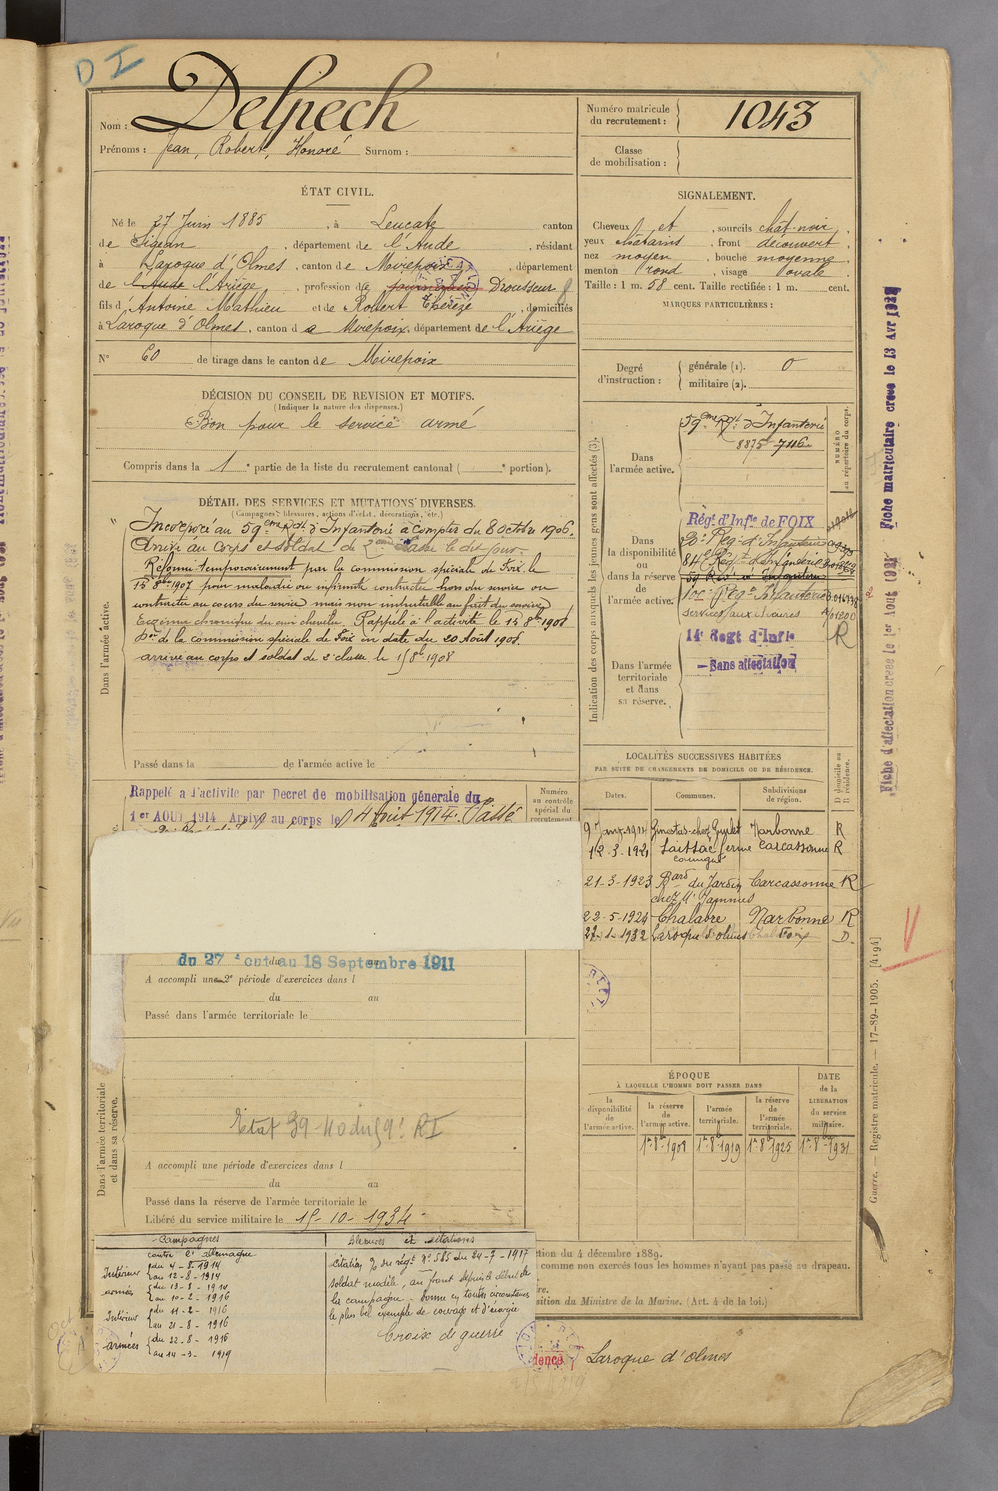 D I
Nom : Delpech
Prénoms : Jean, Robert, Honoré Surnom :
Numéro matricule du recrutement : 1043
Classe de mobilisation :
ÉTAT CIVIL.
Né le 27 Juin 1885, à Leucate, canton
de Sigean, département de l'Aude, résidant
à Laroque d'Olmes, canton de Mirepoix, département
de l'Aude l'Ariège, profession de journalier Drousseur
fils d'Antoine Mathieu et de Robert Thérèze, domiciliés
à Laroque d'Olmes, canton de Mirepoix, département de l'Ariège
N° 60 de tirage dans le canton de Mirepoix
SIGNALEMENT.
Cheveux et, sourcils chât-noir,
yeux châtains, front découvert,
nez moyen, bouche moyenne,
menton rond, visage ovale
Taille : 1 m. 58 cent. Taille rectifiée : 1 m. cent.
MARQUES PARTICULIÈRES :
Degré d'instruction : générale (1). 0
militaire (2).
DÉCISION DU CONSEIL DE REVISION ET MOTIFS.
(Indiquer la nature des dispenses.)
Bon pour le service armé
Compris dans la 1e partie de la liste du recrutement cantonal ( e portion).
DÉTAIL DES SERVICES ET MUTATIONS DIVERSES.
(Campagnes, blessures, actions d'éclat, décorations, etc.)
Dans l'armée active.
Incorporé au 59eme Rgt d'Infanterie à compter du 8 Octobre 1906.
Arrivé au Corps et soldat de 2eme classe le dit jour.
Réformé temporairement par la commission spéciale de Foix le
15 8bre 1907 pour maladie ou infirmité contractée hors du service ou
contractée au cours du service mais non imputable au fait du service
Eczéma chronique du cuir chevelu. Rappelé à l'activité le 15 8bre 1908
Don de la commission spéciale de Foix en date du 20 Août 1908
arrivé au corps et soldat de 2e classe le 15 8bre 1908
Passé dans la de l'armée active le
Rappelé à l'activité par Décret de mobilisation générale du
1er AOUT 1914. Arrivé au corps le 4 Août 1914. Passé
Numéro au contrôle spécial du recrutement
du 27 au 18 Septembre 1911
A accompli une 2e période d'exercices dans l
du au
Passé dans l'armée territoriale le
Dans l'armée territoriale et dans sa réserve.
A accompli une période d'exercices dans l
du au
Passé dans la réserve de l'armée territoriale le
Libéré du service militaire le 15-10-1934
Indication des corps auxquels les jeunes gens sont affectés (3).
NUMÉRO au répertoire du corps.
Dans l'armée active.
59eme Rgt d'Infanterie
8875
Dans la disponibilité ou dans la réserve de l'armée active.
Régt d'Infie de FOIX
84e Rég d'Infanterie
Services auxiliaires
R
Dans l'armée territoriale et dans sa réserve.
14e Regt d'Infie
— Sans affectation
LOCALITÉS SUCCESSIVES HABITÉES
PAR SUITE DE CHANGEMENTS DE DOMICILE OU DE RÉSIDENCE.
Dates. Communes. Subdivisions de région. D domicile ou R résidence.
9 Janv 1914 Ginestas chez Narbonne R
12-3-1921 ferme Carcassonne R
21-3-1923 Bard du Jardin Carcassonne R
22-5-1924 Chalabre Narbonne R
27-1-1932 Laroque d'Olmes Foix D.
ÉPOQUE
À LAQUELLE L'HOMME DOIT PASSER DANS
DATE de la LIBÉRATION du service militaire.
la disponibilité de l'armée active. la réserve de l'armée active. l'armée territoriale. la réserve de l'armée territoriale.
1er 8b 1908 1er 8b 1919 1er 8b 1925 1er 8b 1931
Campagnes
contre l'Allemagne
Intérieur du 4-8-1914
au 12-8-1914
armées du 13-8-1914
au 10-2-1916
Intérieur du 11-2-1916
au 21-8-1916
armées du 22-8-1916
au 14-3-1919
Blessures et citations
Citation du régt n° 585 du 24-7-1917
soldat modèle, au front depuis le début de
la campagne - donne en toutes circonstances
le plus bel exemple de courage et d'énergie
Croix de guerre
ction du 4 décembre 1889.
comme non exercés tous les hommes n'ayant pas passé au drapeau.
sition du Ministre de la Marine. (Art. 4 de la loi.)
Laroque d'Olmes
Fiche d'affectation créée le 1er Aout 1921 Fiche matriculaire créée le 13 Avr
Guerre. — Registre matricule. — 17-89-1905. [4194]